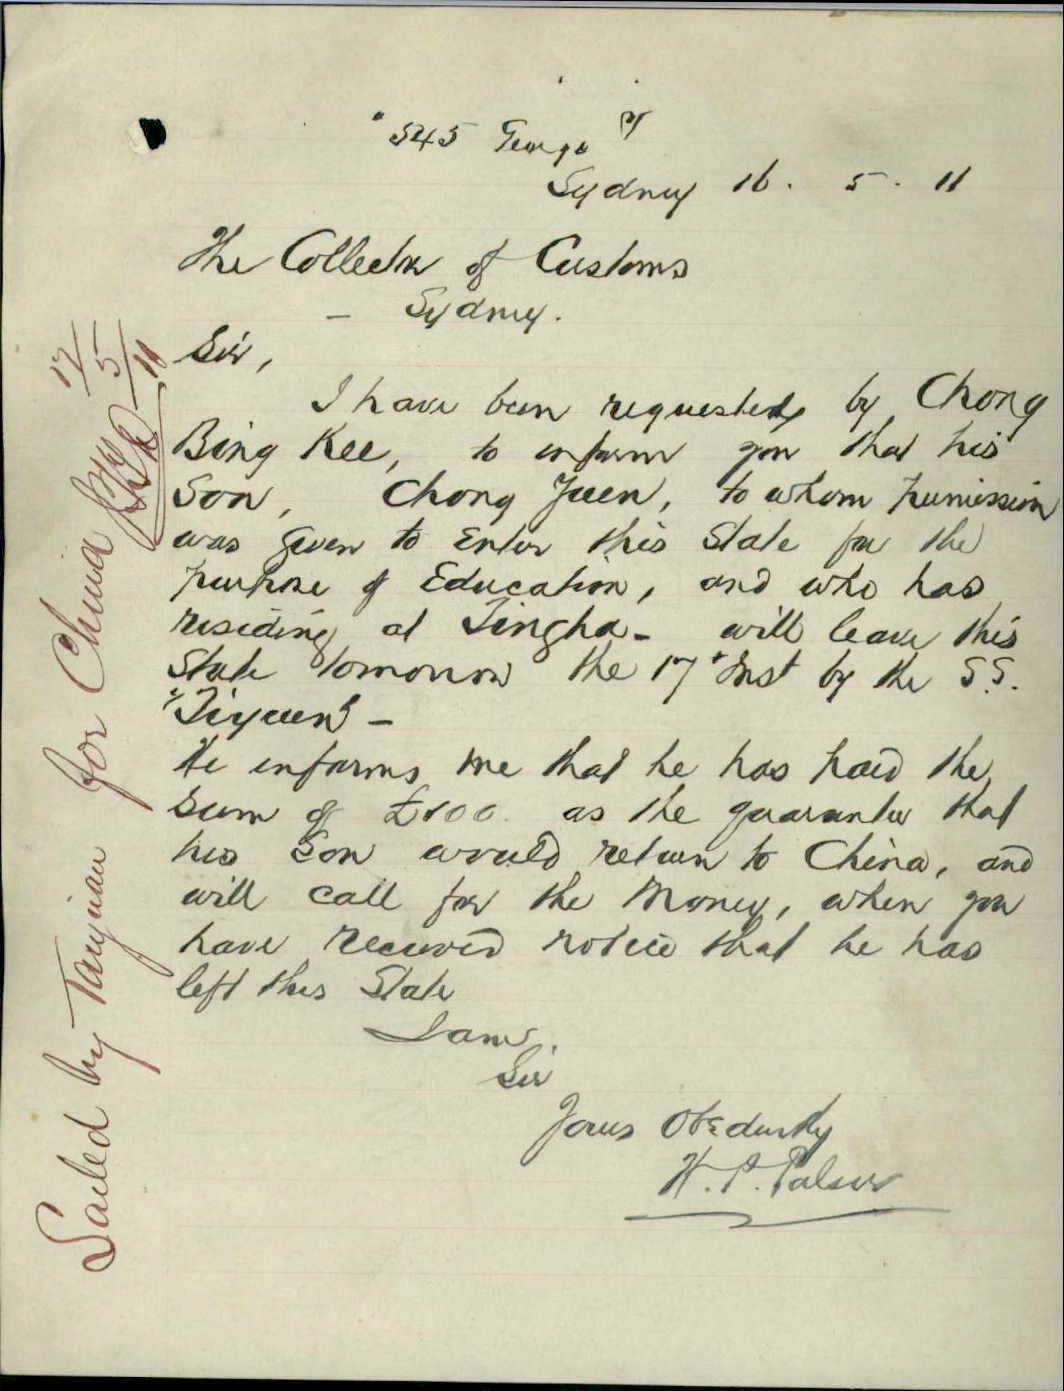 "545 George St
Sydney 16. 5. 11
The Collector of Customs
- Sydney.
Sir,
I have been requested by Chong
Bing Kee, to inform you that his
Son, Chong Juen, to whom permission
was given to Enter this State for the
purpose of Education, and who has
residing at Tingha - will leave this
State tomorrow the 17th Inst by the S.S.
"Tiyuen" -
He informs me that he has paid the
sum of £100. as the guarantee that
his Son would return to China, and
will call for the Money, when you
have received notice that he has
left this State
I am,
Sir
Yours Obediently
H. P. Palser
Sailed by Taiyuan for China
17/5/11